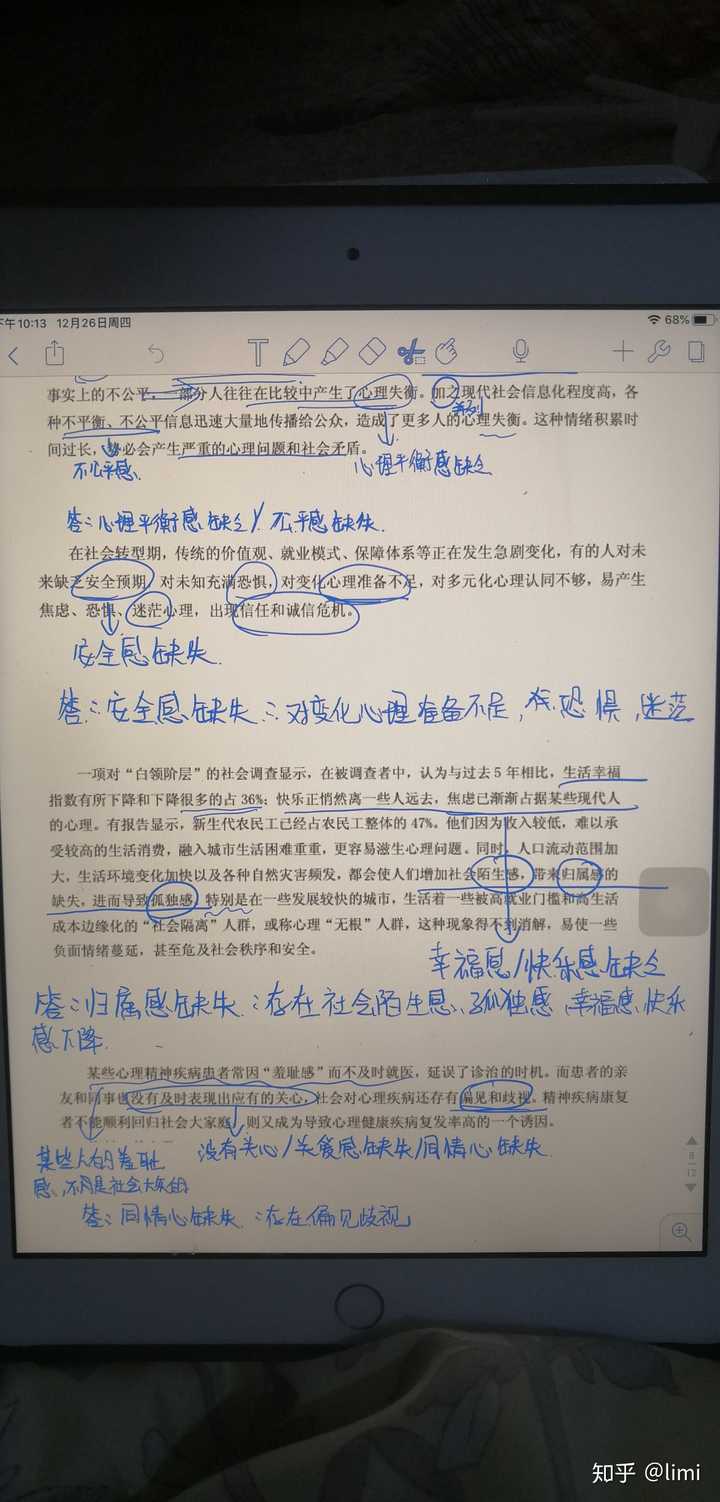 下午10:13 12月26日周四
68%
事实上的不公平，一部分人往往在比较中产生了心理失衡。加之现代社会信息化程度高，各
种不平衡、不公平信息迅速大量地传播给公众，造成了更多人的心理失衡。这种情绪积累时
间过长，势必会产生严重的心理问题和社会矛盾。
不公平感
心理平衡感缺乏
答：心理平衡感缺乏/不公平感缺失
在社会转型期，传统的价值观、就业模式、保障体系等正在发生急剧变化，有的人对未
来缺乏安全预期，对未知充满恐惧，对变化心理准备不足，对多元化心理认同不够，易产生
焦虑、恐惧、迷茫心理，出现信任和诚信危机。
安全感缺失
答：安全感缺失：对变化心理准备不足，恐惧，迷茫
一项对“白领阶层”的社会调查显示，在被调查者中，认为与过去5年相比，生活幸福
指数有所下降和下降很多的占36%；快乐正悄然离一些人远去，焦虑已渐渐占据某些现代人
的心理。有报告显示，新生代农民工已经占农民工整体的47%。他们因为收入较低，难以承
受较高的生活消费，融入城市生活困难重重，更容易滋生心理问题。同时，人口流动范围加
大，生活环境变化加快以及各种自然灾害频发，都会使人们增加社会陌生感，带来归属感的
缺失，进而导致孤独感。特别是在一些发展较快的城市，生活着一些被高就业门槛和高生活
成本边缘化的“社会隔离”人群，或称心理“无根”人群，这种现象得不到消解，易使一些
负面情绪蔓延，甚至危及社会秩序和安全。
幸福感/快乐感缺乏
答：归属感缺失：存在社会陌生感、孤独感、幸福感、快乐
感下降
某些心理精神疾病患者常因“羞耻感”而不及时就医，延误了诊治的时机。而患者的亲
友和同事也没有及时表现出应有的关心，社会对心理疾病还存有偏见和歧视。精神疾病康复
者不能顺利回归社会大家庭，则又成为导致心理健康疾病复发率高的一个诱因。
没有关心/关爱感缺失/同情心缺失
某些人的羞耻
感，不是社会大众的
答：同情心缺失：存在偏见歧视
8
12
知乎 @limi